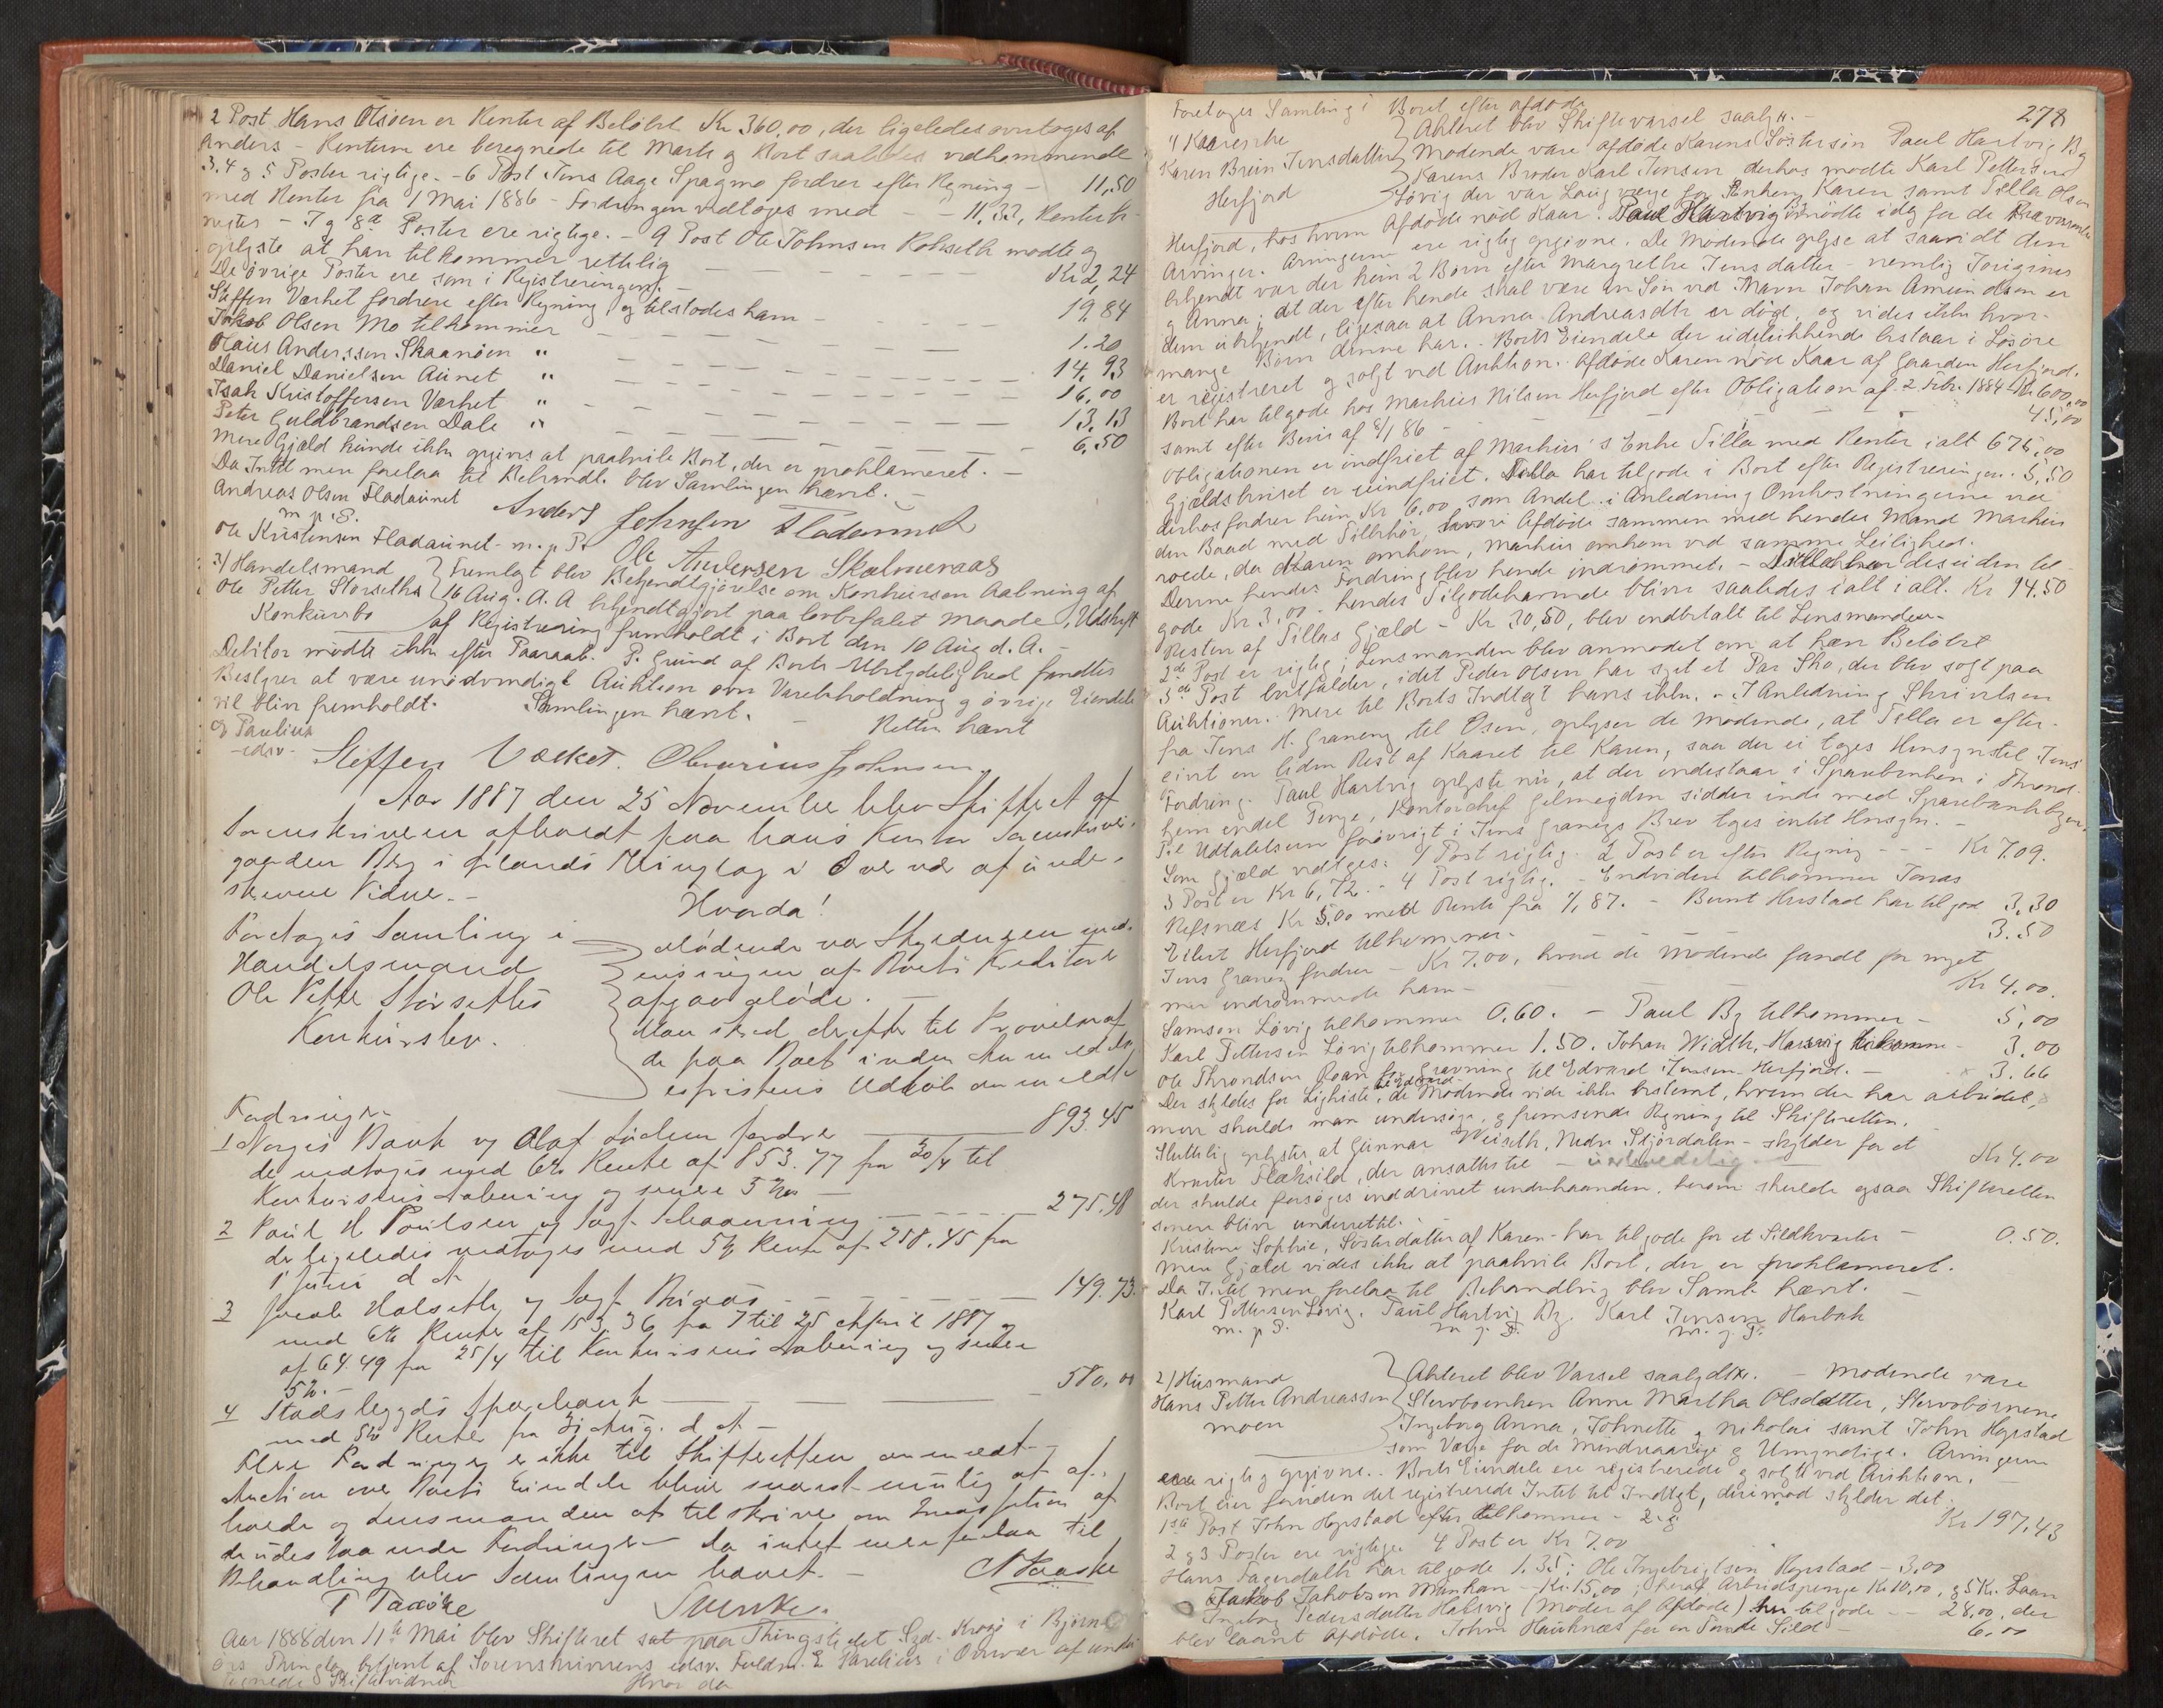 2 Post Hans Olsøen er Renter af Beløbet Kr 360,00, der ligeledes overtages af
Anders - Renterne ere beregnede til Marts og Boet saaledes vedkommende
3, 4 og 5 Poster rigtige. - 6 Post Jens Aage Spagmo fordrer efter Regning - 11,50
med Renter fra 1 Mai 1886 - Fordringen vedtoges med - - 11,33, Renter
7 og 8de Poster ere rigtige. - 9 Post Ole Johnsen Rokseth mødte og
oplyste at han tilkommer rettelig - Kr 2,24
De øvrige Poster ere som i Registreringen. -
Steffen Værket fordrere efter Regning og tilstodes ham - 19,84
Jakob Olsen Mo tilkommer - 1.20
Olaus Anderssen Skaanøen " - 14,93
Daniel Danielsen Aunet " - 16,00
Isak Kristoffersen Værket " - 13,13
Peter Guldbrandsen Dale " - 6,50
Mere Gjæld kunde ikke opgives at paahvile Boet, der er proklameret. -
Da Intet mere forelaa til Behandl. blev Samlingen hævet. -
Andreas Olsen Fladaunet Anders Johnsen Fladaunet
m. p. P.
Ole Kristensen Fladaunet m. p. P. Ole Andersen Skalmeraas
3/ Handelsmand Fremlagt blev Bekjendtgjørelse om Konkursen Aabning af
Ole Petter Størseths 16 Aug. d. A bekjendtgjort paa lovbefalet Maade, Udskrift
Konkursbo af Registrering fremholdt i Boet den 10 Aug d. A. -
Debitor mødte ikke efter Paaraab. P. Grund af Boets Ubetydelighed fandtes
Bestyrer at være unødvendigt Auktion over Varebeholdning og øvrige Eiendele
vil blive fremholdt. Samlingen hævet. - Retten hævet
Paulius
edsv. Steffen Værket. Johnsen
Aar 1887 den 25 November blev Skifteret af
Sorenskriveren afholdt paa hans Kontor Sorenskriver-
gaarden Berg i Thinglag i Overvær af under-
skrevne Vidner. -
Hvorda!
Foretoges Samling i Mødende var
Handelsmand af Boets Kreditorer
Ole Petter Størseths afgav Møde. -
Konkursbo. Man skred derefter til Prøvelse af
de paa Boet inden Anmeldel-
sesfristens Udløb anmeldte
Fordringer
1 Norges Bank og Olaf Lødem fordrer 893.45
de vedtoges med 6% Rente af 853.77 fra 20/4 til
Konkursens Aabning og senere 5% -
2 Paul H. Poulsen og Sagf. Schaanning - 275.48
de ligeledes vedtages med 5% Rente af 258.45 fra
1 Juni d A
3 Jacob Halseth og Sagf. - 149.73.
med 6% Rente af 153,36 fra 7 til 25 April 1887 og
af 64.49 fra 25/4 til Konkursens Aabning og senere
5%. -
4 Stadsbygds Sparebank - 580,00
med 5% Renter fra Aug. d A -
Flere Fordringer er ikke til Skifteretten anmeldt -
Auction over Boets Eiendele blive snarest mulig at af-
holde og Lensmanden at tilskrive om Incassation af
de udestaaende Fordringer - Da intet mere forelaa til
Behandling blev Samlingen hævet. -
N Haaske
T Taaske Svenke.
Aar 1888 den 11te Mai blev Skifteret sat paa Thingstedet Krogø i Bjørn
ørs Thinglag betjent af Sorenskriverens edsv. Fuldm. E. i Overvær af under
tegnede Skiftevidner Hvor da
278
Foretoges Samling i Boet efter afdøde
1/ Kaarenke Akteret blev Skiftevarsel saalyd. -
Karen Brein Jensdatter Mødende vare afdøde Karens Søstersøn Paul Hartvig By
Herfjord Karens Broder Karl Jensen derhos mødte Karl Pettersen
Løvig der var Laugværge for Enken Karen samt Tilla Olsen
Herfjord, hos hvem Afdøde nød Kaar. Paul Hartvig mødte idag for de fraværende
Arvinger. Arvingerne ere rigtig opgivne. De Mødende oplyse at saavidt dem
bekjendt var der kun 2 Børn efter Margrethe Jensdatter - nemlig
og Anna; at der efter hende skal være en Søn ved Navn Johan Amundsen er
dem ubekjendt, ligesaa at Anna Andreasdtr er død, og vides ikke hvor-
mange Børn denne har. - Boets Eiendele der udelukkende bestaar i Løsøre
er registreret og solgt ved Auktion. Afdøde Karen nød Kaar af Gaarden Herfjord.
Boet har tilgode hos Markus Nilsen Herfjord efter Obligation af 2 Febr. 1884 Kr 600,00
samt efter Bevis af 8/1 86 - 45,00
Obligationen er indfriet af Markus's Enke Tilla med Renter ialt 675,00
Gjældsbeviset er uindfriet. Tilla har tilgode i Boet efter Registreringen. 5,50
derhos fordrer hun Kr 6,00 som Andel i Anledning Omkostningerne ved
den Baad med Tilbehør, hvori Afdøde sammen med hendes Mand Markus
roede, da Karen omkom, Markus omkom ved samme Leilighed.
Denne hendes Fordring blev hende indrømmet. - Tilla har desuden til
gode Kr 3,00 - hendes Tilgodehavende bliver saaledes ialt i alt. Kr 14.50
Resten af Tillas Gjæld - Kr 30,50, blev indbetalt til Lensmanden.
2de Post er rigtig; Lensmanden blev anmodet om at Beløbet
3de Post bortfalder, idet Peder Olsen har syet et Par Sko, der blev solgt paa
Auktionen. Mere til Boets Indtægt haves ikke. - I Anledning Skrivelsen
fra Jens H. Graneng til Osen, oplyser de Mødende, at Tilla er efter-
givet en liden Rest af Kaaret til Karen, saa der ei tages Hensyn til Jens
Fordring. Paul Hartvig oplyste nu, at der indestaar i Sparebanken i Thrond-
hjem endel Penge, Kontorchef Gelmeyden sidder inde med Sparebankbogen.
Til Udtalelsen forøvrigt i Jens Granengs Brev tages intet Hensyn. -
Som Gjæld vedtoges: 1 Post rigtig - 2 Post er efter Regning - - - Kr 7.09.
3 Post er Kr 6,72 - 4 Post rigtig. - Endvidere tilkommer Jonas
Refsnæs Kr 5,00 med Rente fra 1/1 87. - Bernt Hustad har tilgode 3,30
Eilert Herfjord tilkommer - 3.50
Jens Graneng fordrer - Kr 7.00, hvad de Mødende fandt for meget
men indrømmede ham - Kr 4.00.
Samson Løvig tilkommer 0,60. - Paul By tilkommer - 5,00
Karl Pettersen Løvig tilkommer 1.50. Johan Width, Harsvig tilkommer - 3,00
Ole Throndsen Roan for Gravning til Edvard Jensen Herfjord. - 3.66
Der skyldes for Ligkiste, de Mødende vide ikke bestemt, hvem der har arbeidet,
men skulde man undersøge, og fremsende Regning til Skifteretten.
Sluttelig oplystes at Gunnar Nedre Stjørdalen - skylder for et
Kvarter Flæksild, der ansattes til - Kr 4.00
der skulde forsøges inddrevet underhaanden, herom skulde ogsaa Skifteretten
senere blive underrettet.
Kristine Sophie, Søsterdatter af Karen har tilgode for et Sildkvarter - 0.50.
Mere Gjæld vides ikke at paahvile Boet, der er proklameret.
Da Intet mere forelaa til Behandling blev Saml. hævet. -
Karl Pettersen Løvig. Paul Hartvig By. Karl Jensen Harbak
m. p. P. m. p. P. m. p. P.
2/ Husmand Akteret blev Varsel saalyd. - Mødende vare
Hans Petter Andreassen Stervboenken Anne Martha Olsdatter, Stervbobørnene
moen Ingeborg Anna, Johnette og Nikolai samt John Hopstad
som Værge for de Mindreaarige og Umyndige. Arvingerne
ere rigtig opgivne. - Boets Eiendele ere registrerede og solgte ved Auktion.
Boet eier foruden det registrerede Intet til Indtægt, derimod skylder det:
1ste Post John Hopstad efter tilkommer - Kr 197,43
2 og 3 Poster ere rigtige 4 Post er Kr 7.00
Hans Fagerdalh har tilgode 1.35; Ole Ingebrigtsen Hopstad - 3,00
Jakob Jakobsen Munkan - Kr. 15,00; heraf Arbeidspenge Kr 10,00, og 5 Kr. Laan
Ingeborg Pedersdatter Halsvig (Moder af Afdøde) har tilgode - - 28,00, der
blev laant Afdøde. John Hauknæs for en Tønde Sild - 6.00